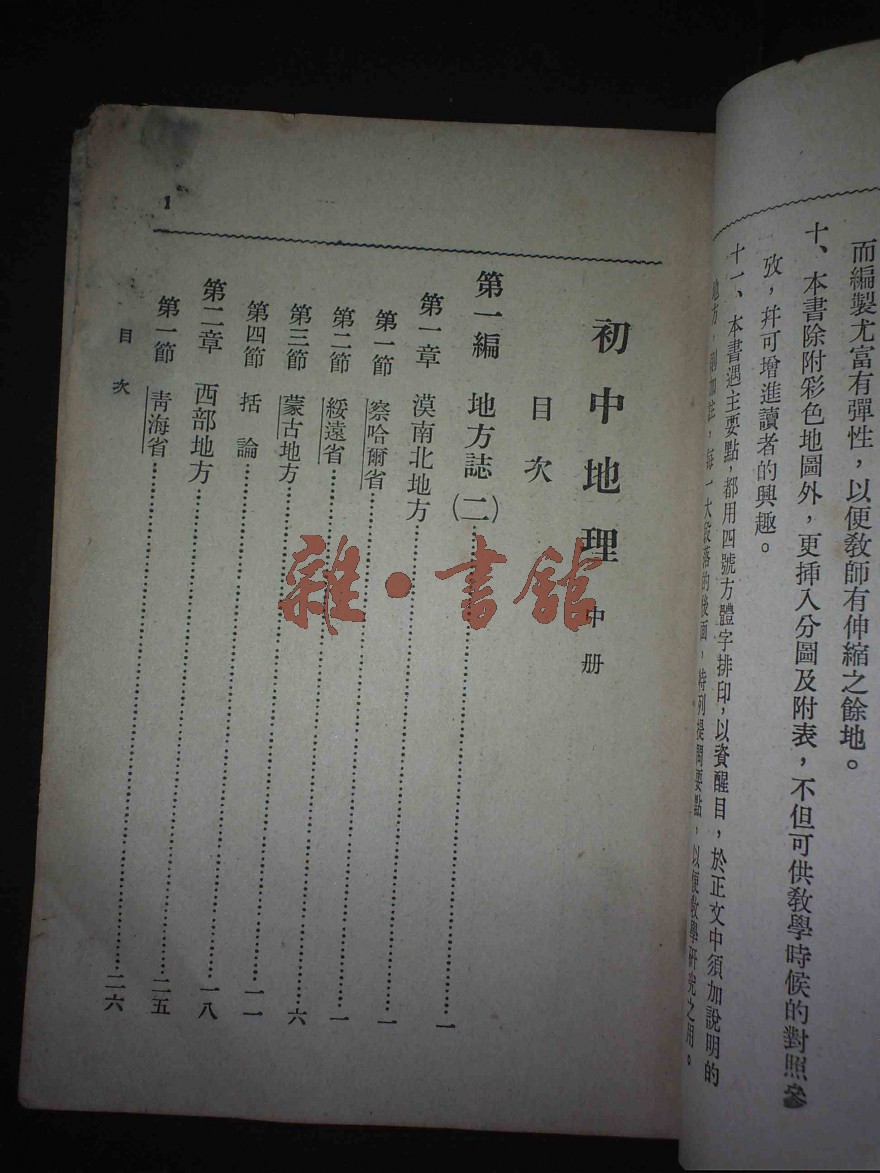 而編製尤富有彈性，以便教師有伸縮之餘地。
十、本書除附彩色地圖外，更挿入分圖及附表，不但可供教學時候的對照參
攷，幷可增進讀者的興趣。
十一、本書遇主要點，都用四號方體字排印，以資醒目，於正文中須加說明的
地方，則加註，每一大段落的後面，特列提問要點，以便教學研究之用。
初中地理 中册
目次
第一編 地方誌(二)……一
第一章 漠南北地方……一
第一節 察哈爾省……一
第二節 綏遠省……六
第三節 蒙古地方……一一
第四節 括論……一八
第二章 西部地方……二五
第一節 青海省……二六
目次
1
雜·書館